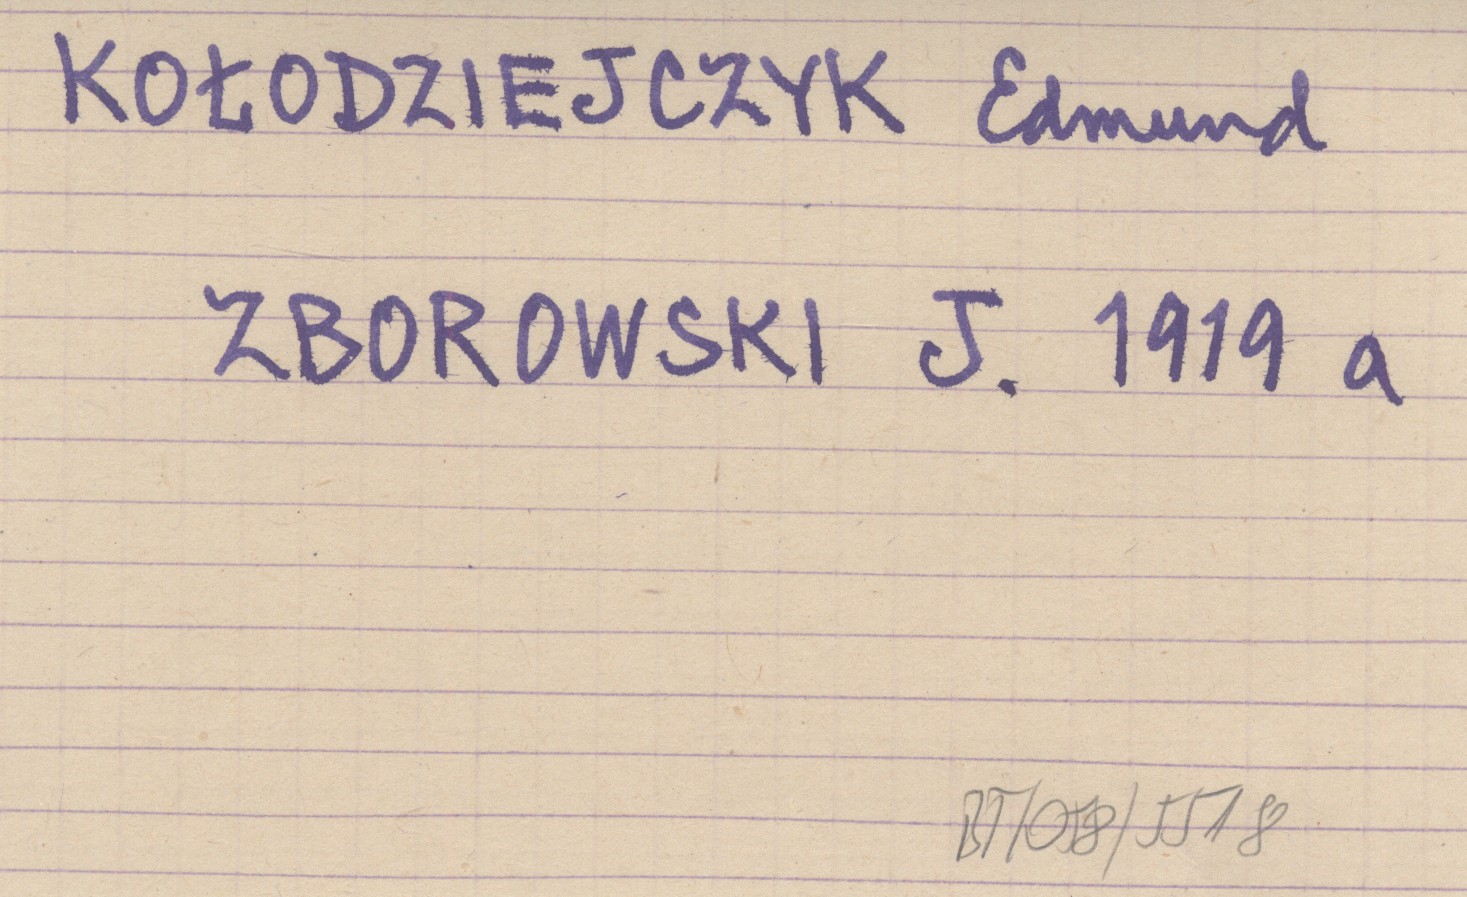 KOŁODZIEJCZYK Edmund
ZBOROWSKI J. 1919 a